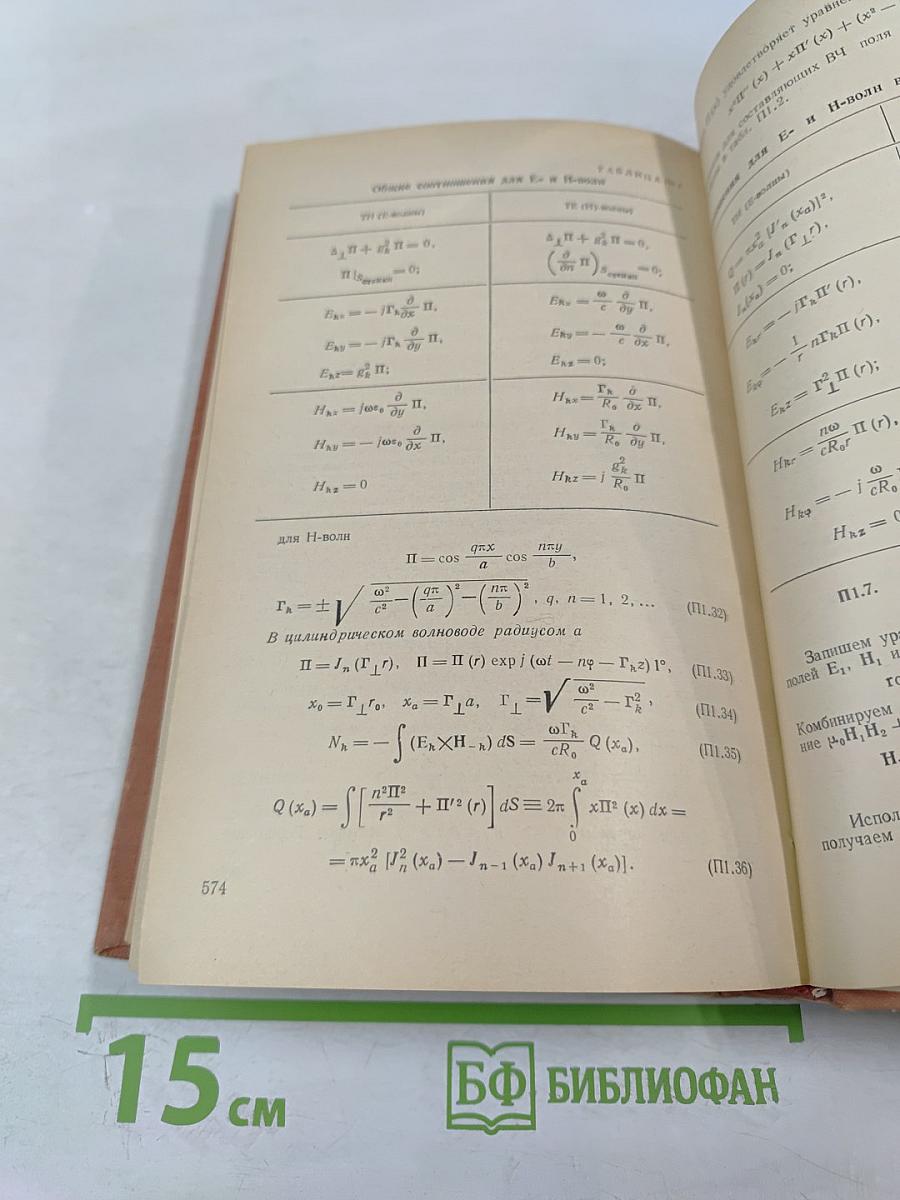 ТАБЛИЦА
Общие соотношения для E- и H-волн
ТН (E-волны) ТЕ (H-волны)
Δ⊥Π + g²ₖ Π = 0, Δ⊥Π + g²ₖ Π = 0,
Π|Sстенки = 0; (∂/∂n Π)Sстенки = 0;
Eₖₓ = — jΓₖ ∂/∂x Π, Eₖₓ = ω/c ∂/∂y Π,
Eₖy = — jΓₖ ∂/∂y Π, Eₖy = — ω/c ∂/∂x Π,
Eₖz = g²ₖ Π; Eₖz = 0;
Hₖₓ = jωε₀ ∂/∂y Π, Hₖₓ = Γₖ/R₀ ∂/∂x Π,
Hₖy = — jωε₀ ∂/∂x Π, Hₖy = Γₖ/R₀ ∂/∂y Π,
Hₖz = 0 Hₖz = j g²ₖ/R₀ Π
для H-волн
Π = cos qπx/a cos nπy/b,
Γₖ = ± √(ω²/c² — (qπ/a)² — (nπ/b)²), q, n = 1, 2, ... (П1.32)
В цилиндрическом волноводе радиусом a
Π = Jₙ (Γ⊥r), Π = Π (r) exp j (ωt — nφ — Γₖz) 1°, (П1.33)
x₀ = Γ⊥r₀, xₐ = Γ⊥a, Γ⊥ = √(ω²/c² — Γ²ₖ), (П1.34)
Nₖ = — ∫ (Eₖ×H₋ₖ) dS = ωΓₖ/cR₀ Q (xₐ), (П1.35)
Q (xₐ) = ∫ [n²Π²/r² + Π′² (r)] dS ≡ 2π ∫₀^xₐ xΠ² (x) dx =
= πx²ₐ [J²ₙ (xₐ) — Jₙ₋₁ (xₐ) Jₙ₊₁ (xₐ)]. (П1.36)
574
удовлетворяет уравне
x²Π″ (x) + xΠ′ (x) + (x² —
для составляющих ВЧ поля
в табл. П1.2.
для E- и H-волн в
ТН (E-волны)
Q = πx²ₐ [J′ₙ (xₐ)]²,
Π(r) = Jₙ (Γ⊥r),
Jₙ(xₐ) = 0;
Eₖr = — jΓₖΠ′ (r),
Eₖφ = — 1/r nΓₖΠ (r),
Eₖz = Γ²⊥Π (r);
Hₖr = nω/cR₀r Π (r),
Hₖφ = — j ω/cR₀
Hₖz = 0
П1.7.
Запишем ура
полей E₁, H₁ и
ro
Комбинируем
ние μ₀H₁H₂
H
Испол
получаем
15 см
БФ БИБЛИОФАН